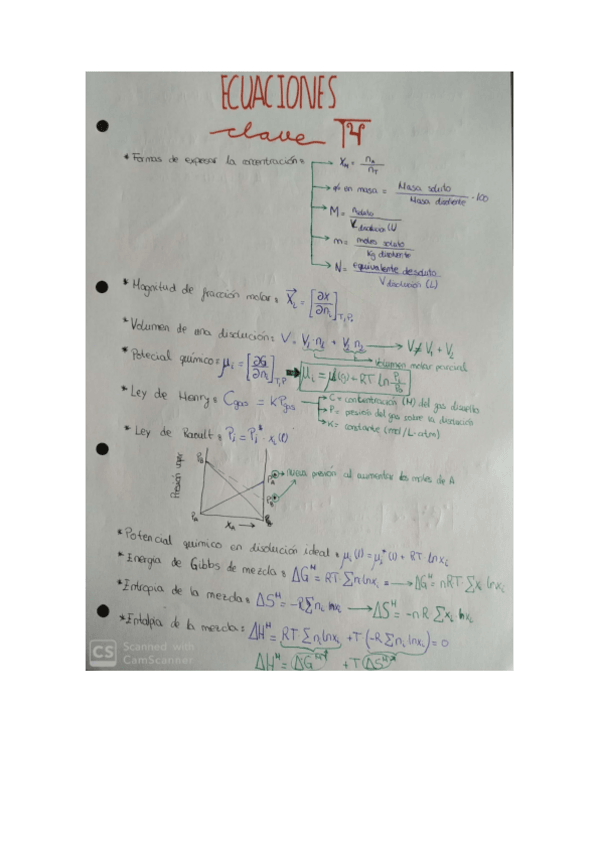 ECUACIONES
clave T4
* Formas de expresar la concentración:
→ Xₐ = nₐ / n_T
→ % en masa = Masa soluto / Masa disolvente · 100
→ M = n soluto / V disolución (L)
→ m = moles soluto / Kg disolvente
→ N = equivalente de soluto / V disolución (L)
* Magnitud de fracción molar: X̄ᵢ = [∂X/∂nᵢ] T,P,
* Volumen de una disolución: V = V₁·n₁ + V₂ n₂ → V ≠ V₁ + V₂
→ Volumen molar parcial
* Potecial químico = μᵢ = [∂G/∂nᵢ] T,P ➡ μᵢ = μ°(g) + RT ln Pᵢ/P₀
* Ley de Henry: Cgas = K Pgas
→ C = concentración (M) del gas disuelto
→ P = presión del gas sobre la disolución
→ K = constante (mol/L·atm)
* Ley de Raoult: Pᵢ = Pᵢ* · xᵢ(l)
Presión vapor
nueva presión al aumentar los moles de A
X_A →
* Potencial químico en disolución ideal: μᵢ(l) = μᵢ*(l) + RT ln xᵢ
* Energía de Gibbs de mezcla: ΔGᴹ = RT · Σ nᵢ ln xᵢ → ΔGᴹ = nRT · Σ xᵢ ln xᵢ
* Entropía de la mezcla: ΔSᴹ = -R Σ nᵢ ln xᵢ → ΔSᴹ = -n R · Σ xᵢ ln xᵢ
* Entalpía de la mezcla: ΔHᴹ = RT Σ nᵢ ln xᵢ + T(-R Σ nᵢ ln xᵢ) = 0
ΔHᴹ = ΔGᴹ + T ΔSᴹ
CS Scanned with
CamScanner